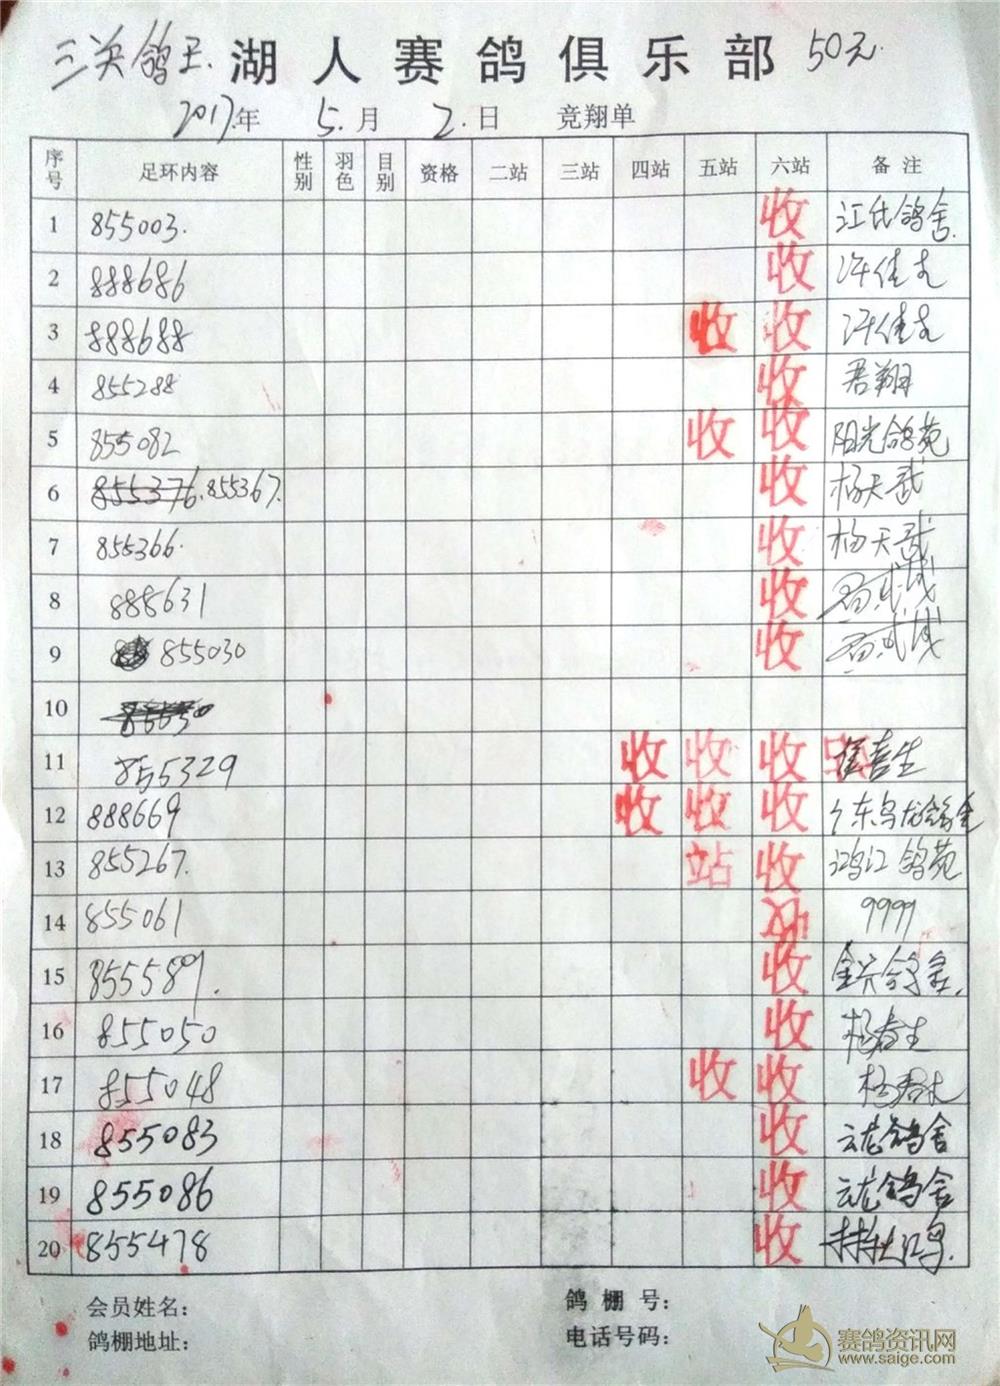 三关鸽王. 湖人赛鸽俱乐部 50元.
2017.年 5.月 2.日 竞翔单
序号 足环内容 性别 羽色 目别 资格 二站 三站 四站 五站 六站 备注
1 855003. 收 江氏鸽舍.
2 888686 收
3 888688 收 收
4 855288 收 君翔
5 855082 收 收 阳光鸽苑
6 855376. 855367. 收 杨天武
7 855366. 收 杨天武
8 888631 收
9 855030 收
10
11 855329 收 收 收
12 888669 收 收 收 广东乌龙鸽舍
13 855267. 站 收 鸿江鸽苑
14 855061 9999
15 855589. 收
16 855050 收 杨春生
17 855048 收 收
18 855083 收 云龙鸽舍
19 855086 收 云龙鸽舍
20 855478 收
会员姓名： 鸽棚号：
鸽棚地址： 电话号码：
赛鸽资讯网
www.saige.com